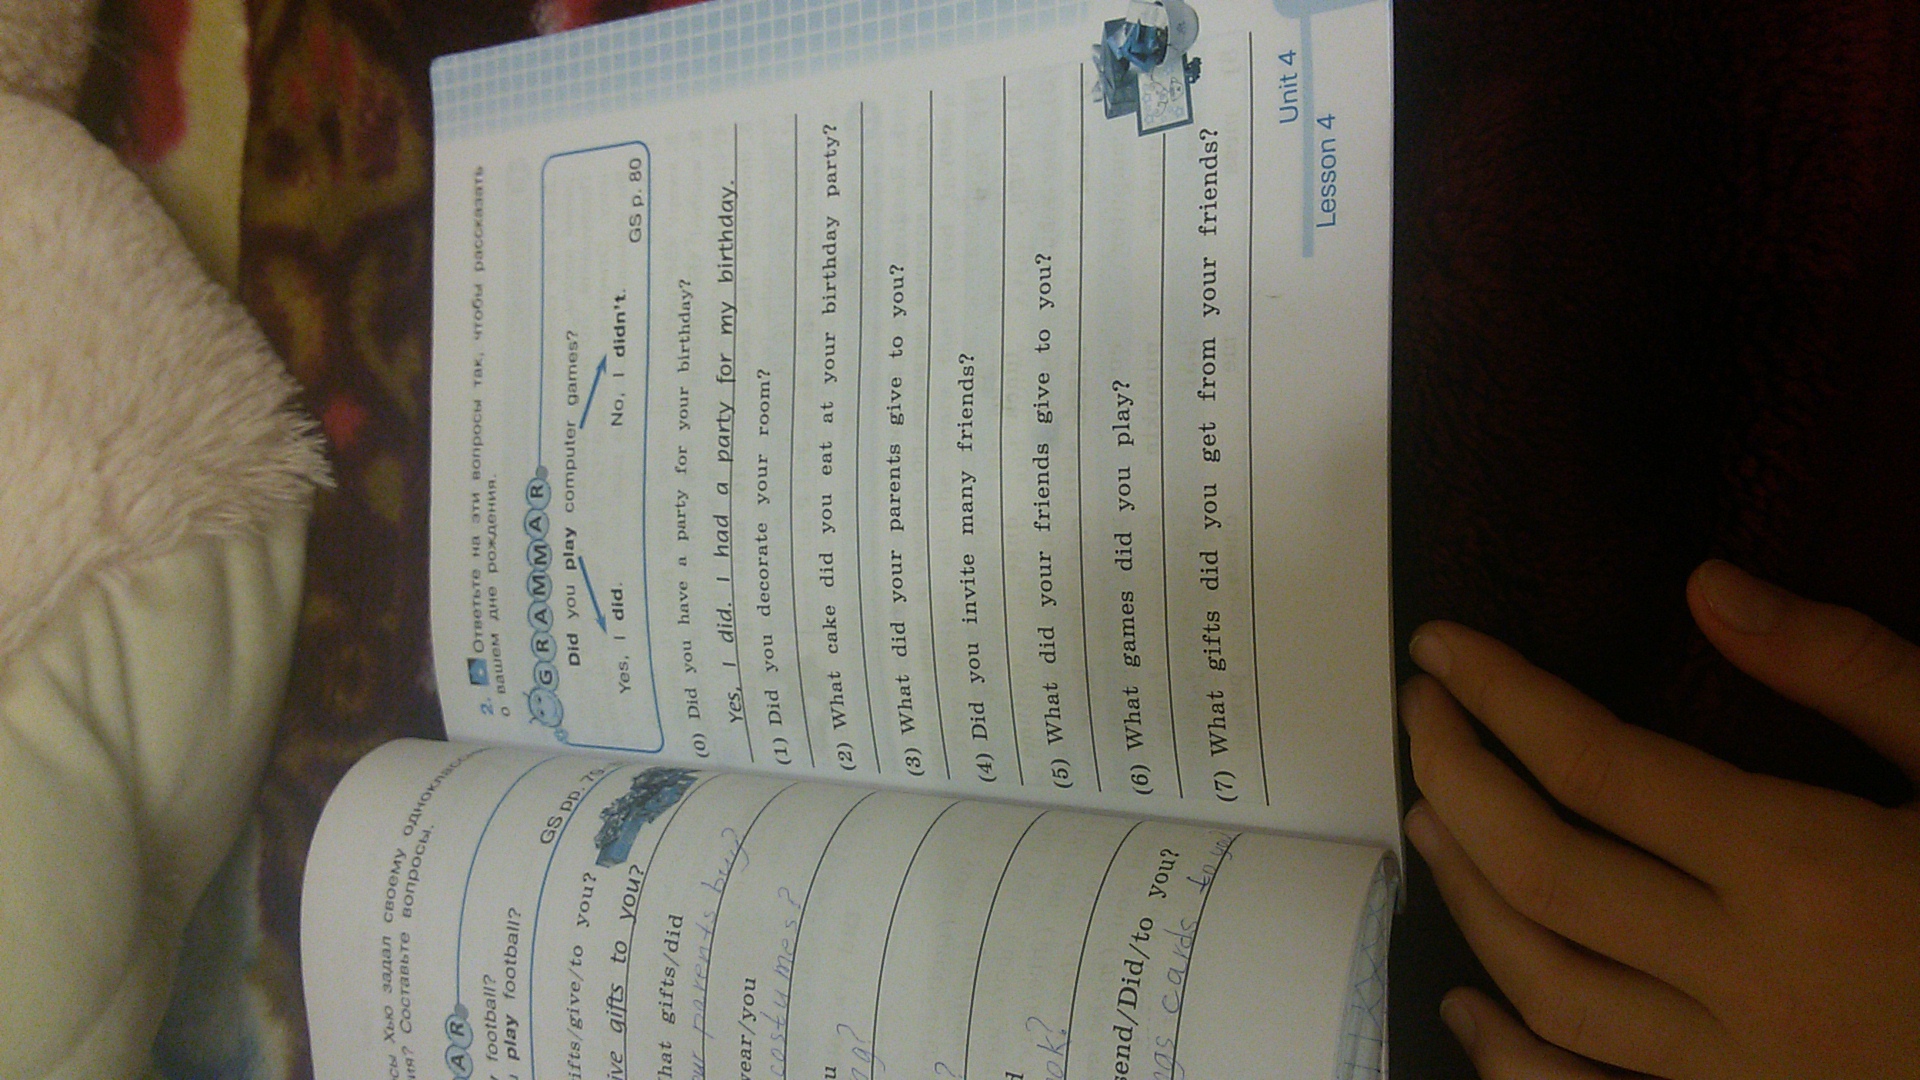 2. Ответьте на эти вопросы так, чтобы рассказать
о вашем дне рождения.
GRAMMAR
Did you play computer games?
Yes, I did. No, I didn't.
GS p. 80
(0) Did you have a party for your birthday?
Yes, I did. I had a party for my birthday.
(1) Did you decorate your room?
(2) What cake did you eat at your birthday party?
(3) What did your parents give to you?
(4) Did you invite many friends?
(5) What did your friends give to you?
(6) What games did you play?
(7) What gifts did you get from your friends?
Unit 4
Lesson 4
Хью задал своему
Составьте вопросы.
AR
football?
play football?
GS pp.
/give/to you?
gifts to you?
gifts/did
parents buy?
/you
costumes?
send/Did/to you?
cards to you